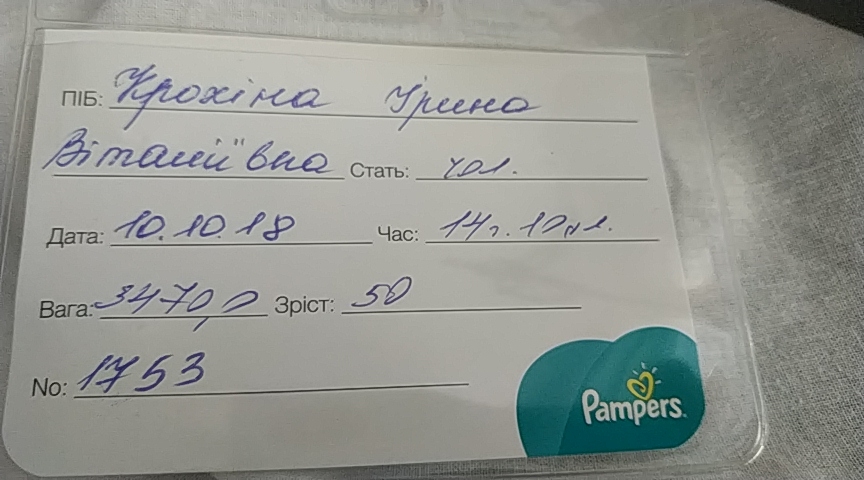 ПІБ: Крохіна Ірина
Віталіївна Стать: чол.
Дата: 10.10.18 Час: 14г. 10хв.
Вага: 3470,0 Зріст: 50
No: 1753
Pampers